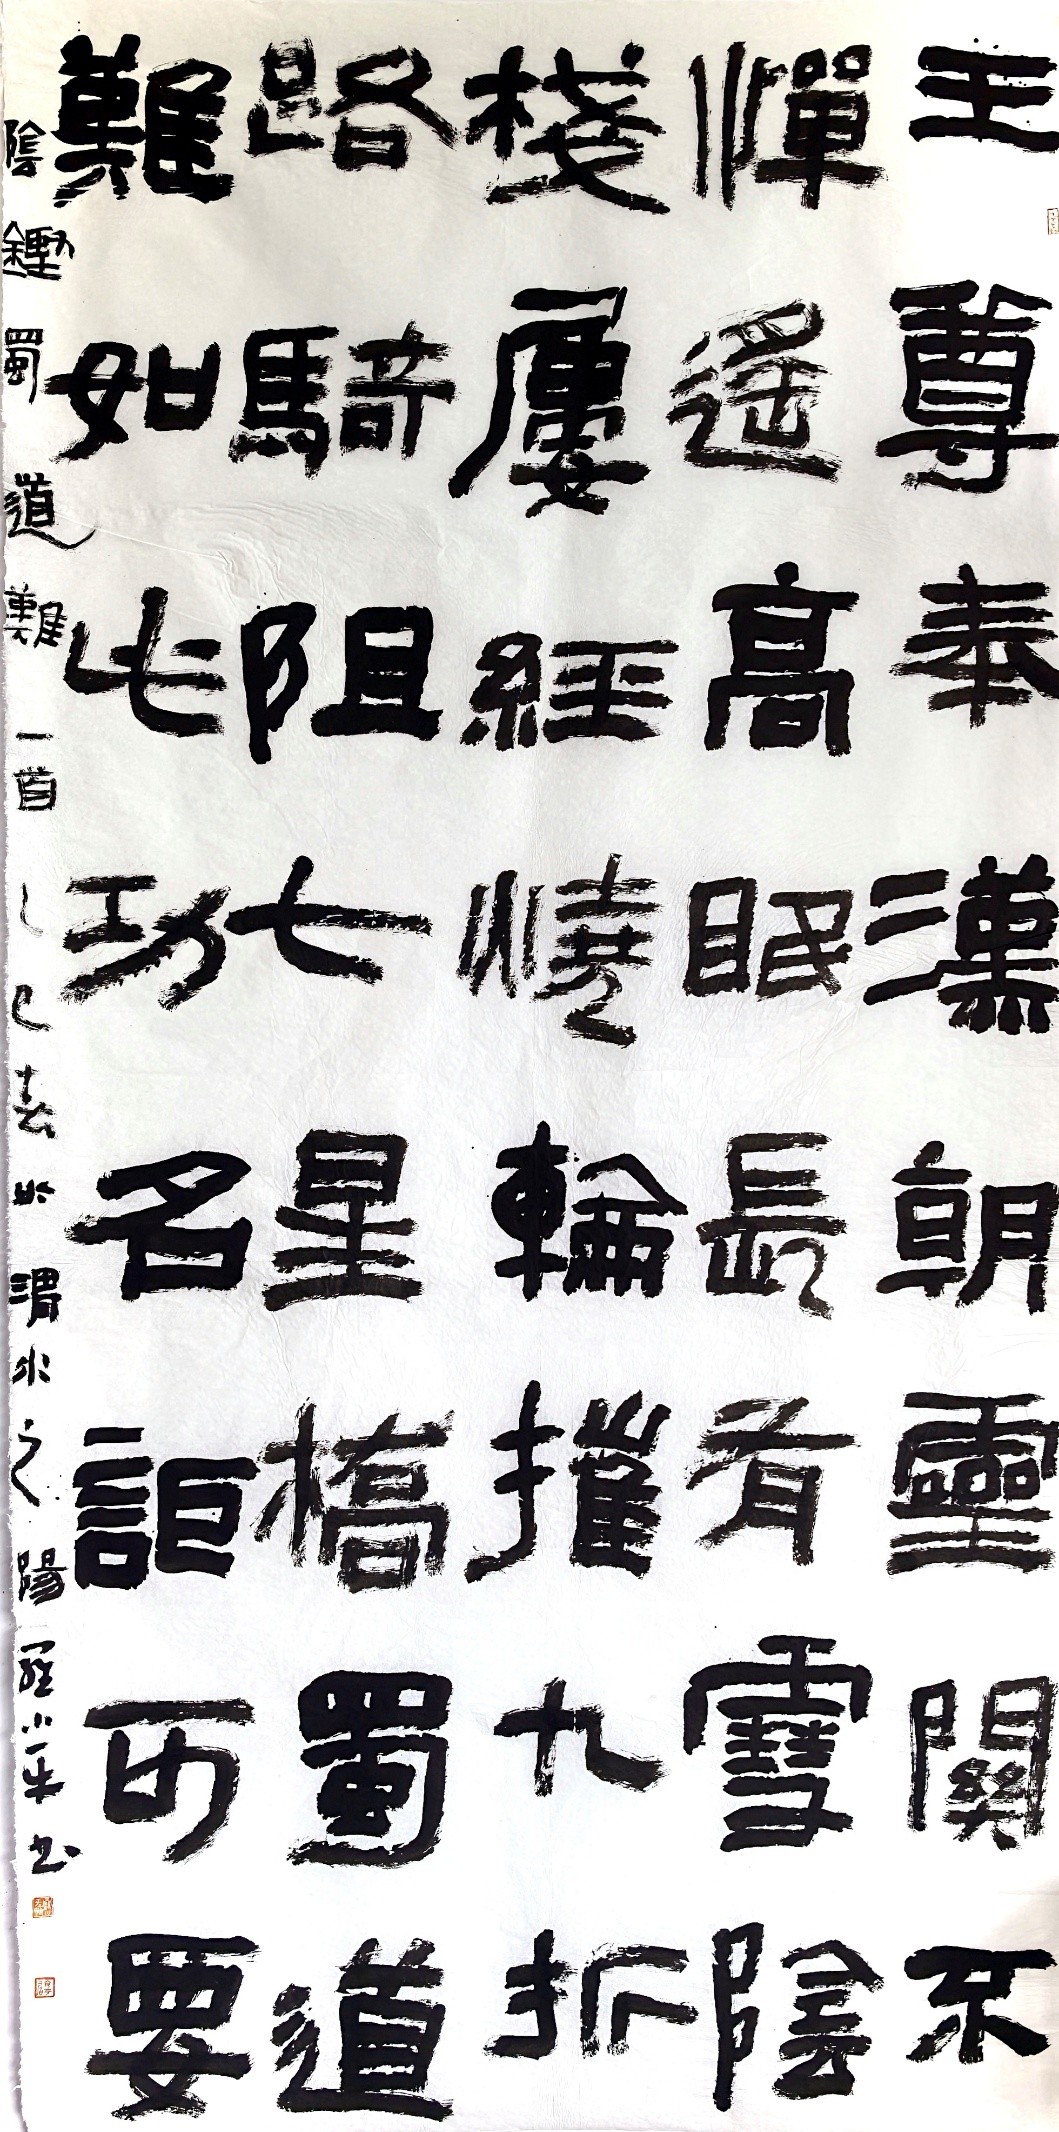 王尊奉漢朝靈關不
憚遙高眠長有雪陰
棧屢經燒輪摧九折
路騎阻七星橋蜀道
難如此功名詎可要
陰鏗蜀道難一首乙巳春於渭水之陽羅小平书